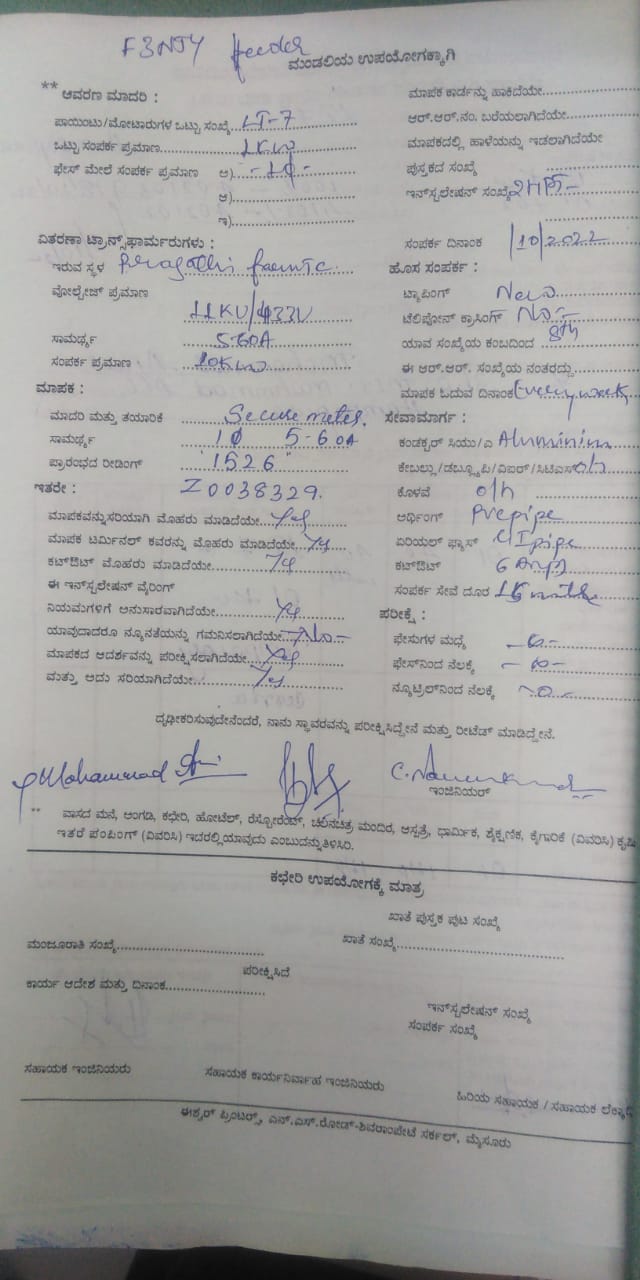 F3NJY feeder
ಮಂಡಲಿಯ ಉಪಯೋಗಕ್ಕಾಗಿ
** ಆವರಣ ಮಾದರಿ :
ಪಾಯಿಂಟು/ಮೋಟಾರುಗಳ ಒಟ್ಟು ಸಂಖ್ಯೆ LT-7
ಒಟ್ಟು ಸಂಪರ್ಕ ಪ್ರಮಾಣ 1KW
ಫೇಸ್ ಮೇಲೆ ಸಂಪರ್ಕ ಪ್ರಮಾಣ ಅ) -1ϕ-
ಆ)
ಇ)
ವಿತರಣಾ ಟ್ರಾನ್ಸ್‌ಫಾರ್ಮರುಗಳು :
ಇರುವ ಸ್ಥಳ
ವೋಲ್ಟೇಜ್ ಪ್ರಮಾಣ
11KV/433V
ಸಾಮರ್ಥ್ಯ 5-60A
ಸಂಪರ್ಕ ಪ್ರಮಾಣ 10KW
ಮಾಪಕ :
ಮಾದರಿ ಮತ್ತು ತಯಾರಿಕೆ Secure meter.
ಸಾಮರ್ಥ್ಯ 1ϕ 5-60A
ಪ್ರಾರಂಭದ ರೀಡಿಂಗ್ "1526"
ಇತರೇ : Z0038329.
ಮಾಪಕವನ್ನು ಸರಿಯಾಗಿ ಮೊಹರು ಮಾಡಿದೆಯೇ Yes
ಮಾಪಕ ಟರ್ಮಿನಲ್ ಕವರನ್ನು ಮೊಹರು ಮಾಡಿದೆಯೇ Yes
ಕಟ್‌ಔಟ್ ಮೊಹರು ಮಾಡಿದೆಯೇ Yes
ಈ ಇನ್‌ಸ್ಟಲೇಷನ್ ವೈರಿಂಗ್
ನಿಯಮಗಳಿಗೆ ಅನುಸಾರವಾಗಿದೆಯೇ Yes
ಯಾವುದಾದರೂ ನ್ಯೂನತೆಯನ್ನು ಗಮನಿಸಲಾಗಿದೆಯೇ No-
ಮಾಪಕದ ಆದರ್ಶವನ್ನು ಪರೀಕ್ಷಿಸಲಾಗಿದೆಯೇ Yes
ಮತ್ತು ಅದು ಸರಿಯಾಗಿದೆಯೇ Yes
ಮಾಪಕ ಕಾರ್ಡನ್ನು ಹಾಕಿದೆಯೇ
ಆರ್.ಆರ್.ನಂ. ಬರೆಯಲಾಗಿದೆಯೇ
ಮಾಪಕದಲ್ಲಿ ಹಾಳೆಯನ್ನು ಇಡಲಾಗಿದೆಯೇ
ಪುಸ್ತಕದ ಸಂಖ್ಯೆ
ಇನ್‌ಸ್ಟಲೇಷನ್ ಸಂಖ್ಯೆ
ಸಂಪರ್ಕ ದಿನಾಂಕ /10/2022
ಹೊಸ ಸಂಪರ್ಕ :
ಟ್ಯಾಪಿಂಗ್ New
ಟೆಲಿಫೋನ್ ಕ್ರಾಸಿಂಗ್ No-
ಯಾವ ಸಂಖ್ಯೆಯ ಕಂಬದಿಂದ 8th
ಈ ಆರ್.ಆರ್. ಸಂಖ್ಯೆಯ ನಂತರದ್ದು
ಮಾಪಕ ಓದುವ ದಿನಾಂಕ Every week
ಸೇವಾಮಾರ್ಗ :
ಕಂಡಕ್ಟರ್ ಸಿಯು/ಎ Aluminium
ಕೇಬಲ್ಲು/ಡಬ್ಲ್ಯೂಪಿ/ವಿಐರ್/ಸಿಟಿಎಸ್ o/h
ಕೊಳವೆ o/h
ಅರ್ಥಿಂಗ್ Pvcpipe
ಏರಿಯಲ್ ಫ್ಯೂಸ್ GIpipe
ಕಟ್‌ಔಟ್ 6 Amp
ಸಂಪರ್ಕ ಸೇವೆ ದೂರ
ಪರೀಕ್ಷೆ :
ಫೇಸುಗಳ ಮಧ್ಯೆ
ಫೇಸ್‌ನಿಂದ ನೆಲಕ್ಕೆ
ನ್ಯೂಟ್ರಲ್‌ನಿಂದ ನೆಲಕ್ಕೆ
ದೃಢೀಕರಿಸುವುದೇನೆಂದರೆ, ನಾನು ಸ್ಥಾವರವನ್ನು ಪರೀಕ್ಷಿಸಿದ್ದೇನೆ ಮತ್ತು ರೀಟೆಡ್ ಮಾಡಿದ್ದೇನೆ.
Mohammad
ಇಂಜಿನಿಯರ್
** ವಾಸದ ಮನೆ, ಅಂಗಡಿ, ಕಛೇರಿ, ಹೋಟೆಲ್, ರೆಸ್ಟೋರೆಂಟ್, ಚಲನಚಿತ್ರ ಮಂದಿರ, ಆಸ್ಪತ್ರೆ, ಧಾರ್ಮಿಕ, ಶೈಕ್ಷಣಿಕ, ಕೈಗಾರಿಕೆ (ವಿವರಿಸಿ)
ಇತರೆ ಪಂಪಿಂಗ್ (ವಿವರಿಸಿ) ಇದರಲ್ಲಿ ಯಾವುದು ಎಂಬುದನ್ನು ತಿಳಿಸಿರಿ.
ಕಛೇರಿ ಉಪಯೋಗಕ್ಕೆ ಮಾತ್ರ
ಖಾತೆ ಪುಸ್ತಕ ಪುಟ ಸಂಖ್ಯೆ
ಮಂಜೂರಾತಿ ಸಂಖ್ಯೆ ಖಾತೆ ಸಂಖ್ಯೆ
ಪರೀಕ್ಷಿಸಿದೆ
ಕಾರ್ಯ ಆದೇಶ ಮತ್ತು ದಿನಾಂಕ
ಇನ್‌ಸ್ಟಲೇಷನ್ ಸಂಖ್ಯೆ
ಸಂಪರ್ಕ ಸಂಖ್ಯೆ
ಸಹಾಯಕ ಇಂಜಿನಿಯರು ಸಹಾಯಕ ಕಾರ್ಯನಿರ್ವಾಹ ಇಂಜಿನಿಯರು ಹಿರಿಯ ಸಹಾಯಕ / ಸಹಾಯಕ
ಈಶ್ವರ್ ಪ್ರಿಂಟರ್ಸ್, ಎನ್.ಎಸ್.ರೋಡ್-ಶಿವರಾಂಪೇಟೆ ಸರ್ಕಲ್, ಮೈಸೂರು